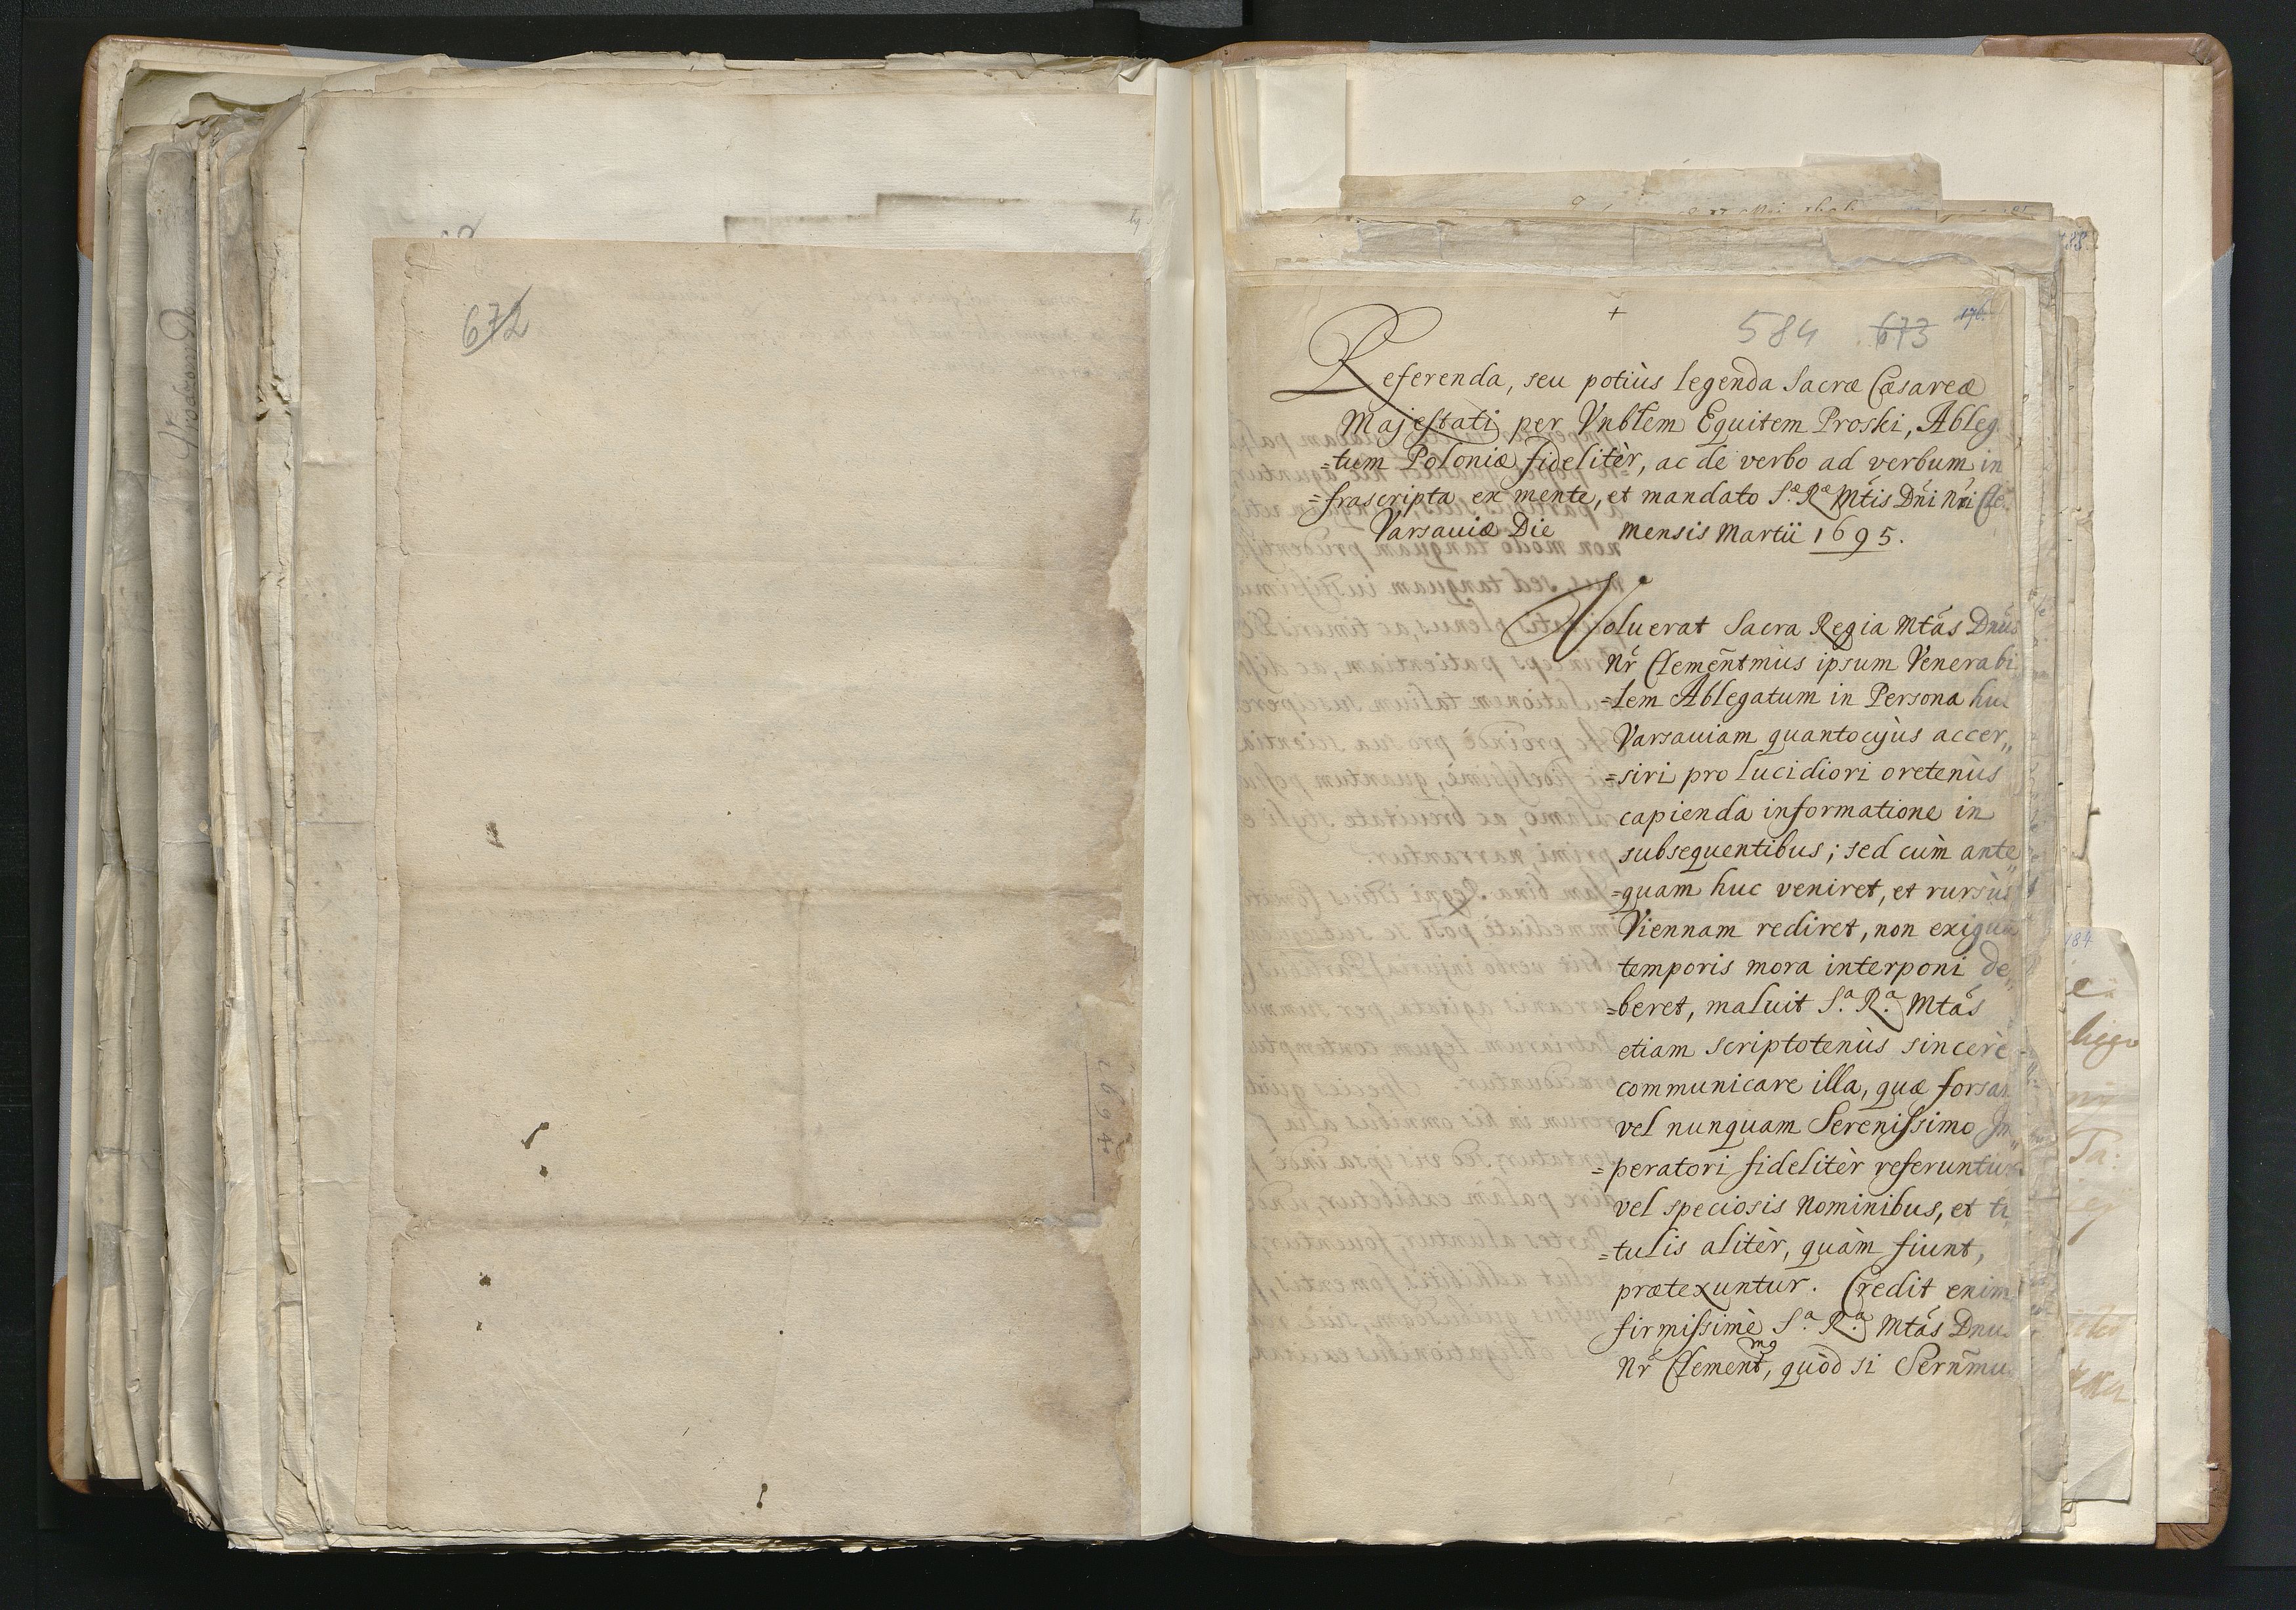 672
1694
584 673 176
+
Referenda, seu potiùs legenda Sacræ Cæsareæ
Majestati per Vnblem Equitem Proski, Ableg
=tum Poloniæ fidelitèr, ac de verbo ad verbum in
=frascripta ex mente, et mandato S.æ R.æ Mtis Dni Nri Cle
Varsaviæ Die mensis Martii 1695.
Voluerat Sacra Regia Mtas Dnus
Nr Clementmus ipsum Venerabi
=lem Ablegatum in Persona huc
Varsauiam quantocyùs accer„
=siri pro lucidiori oretenùs
capienda informatione in
subsequentibus; sed cùm ante
=quam huc veniret, et rursùs
Viennam rediret, non exigua
temporis mora interponi de„
=beret, maluit S.a R.a Mtas
etiam scriptotenùs sincerè
communicare illa, quæ forsan
vel nunquam Serenissimo Im„
=peratori fidelitèr referuntur
vel speciosis Nominibus, et ti
=tulis alitèr, quàm fiunt,
prætexuntur. Credit enim
firmissimè S.a R.a Mtas Dnu
Nr Clementmg, quòd si Sernmu
184